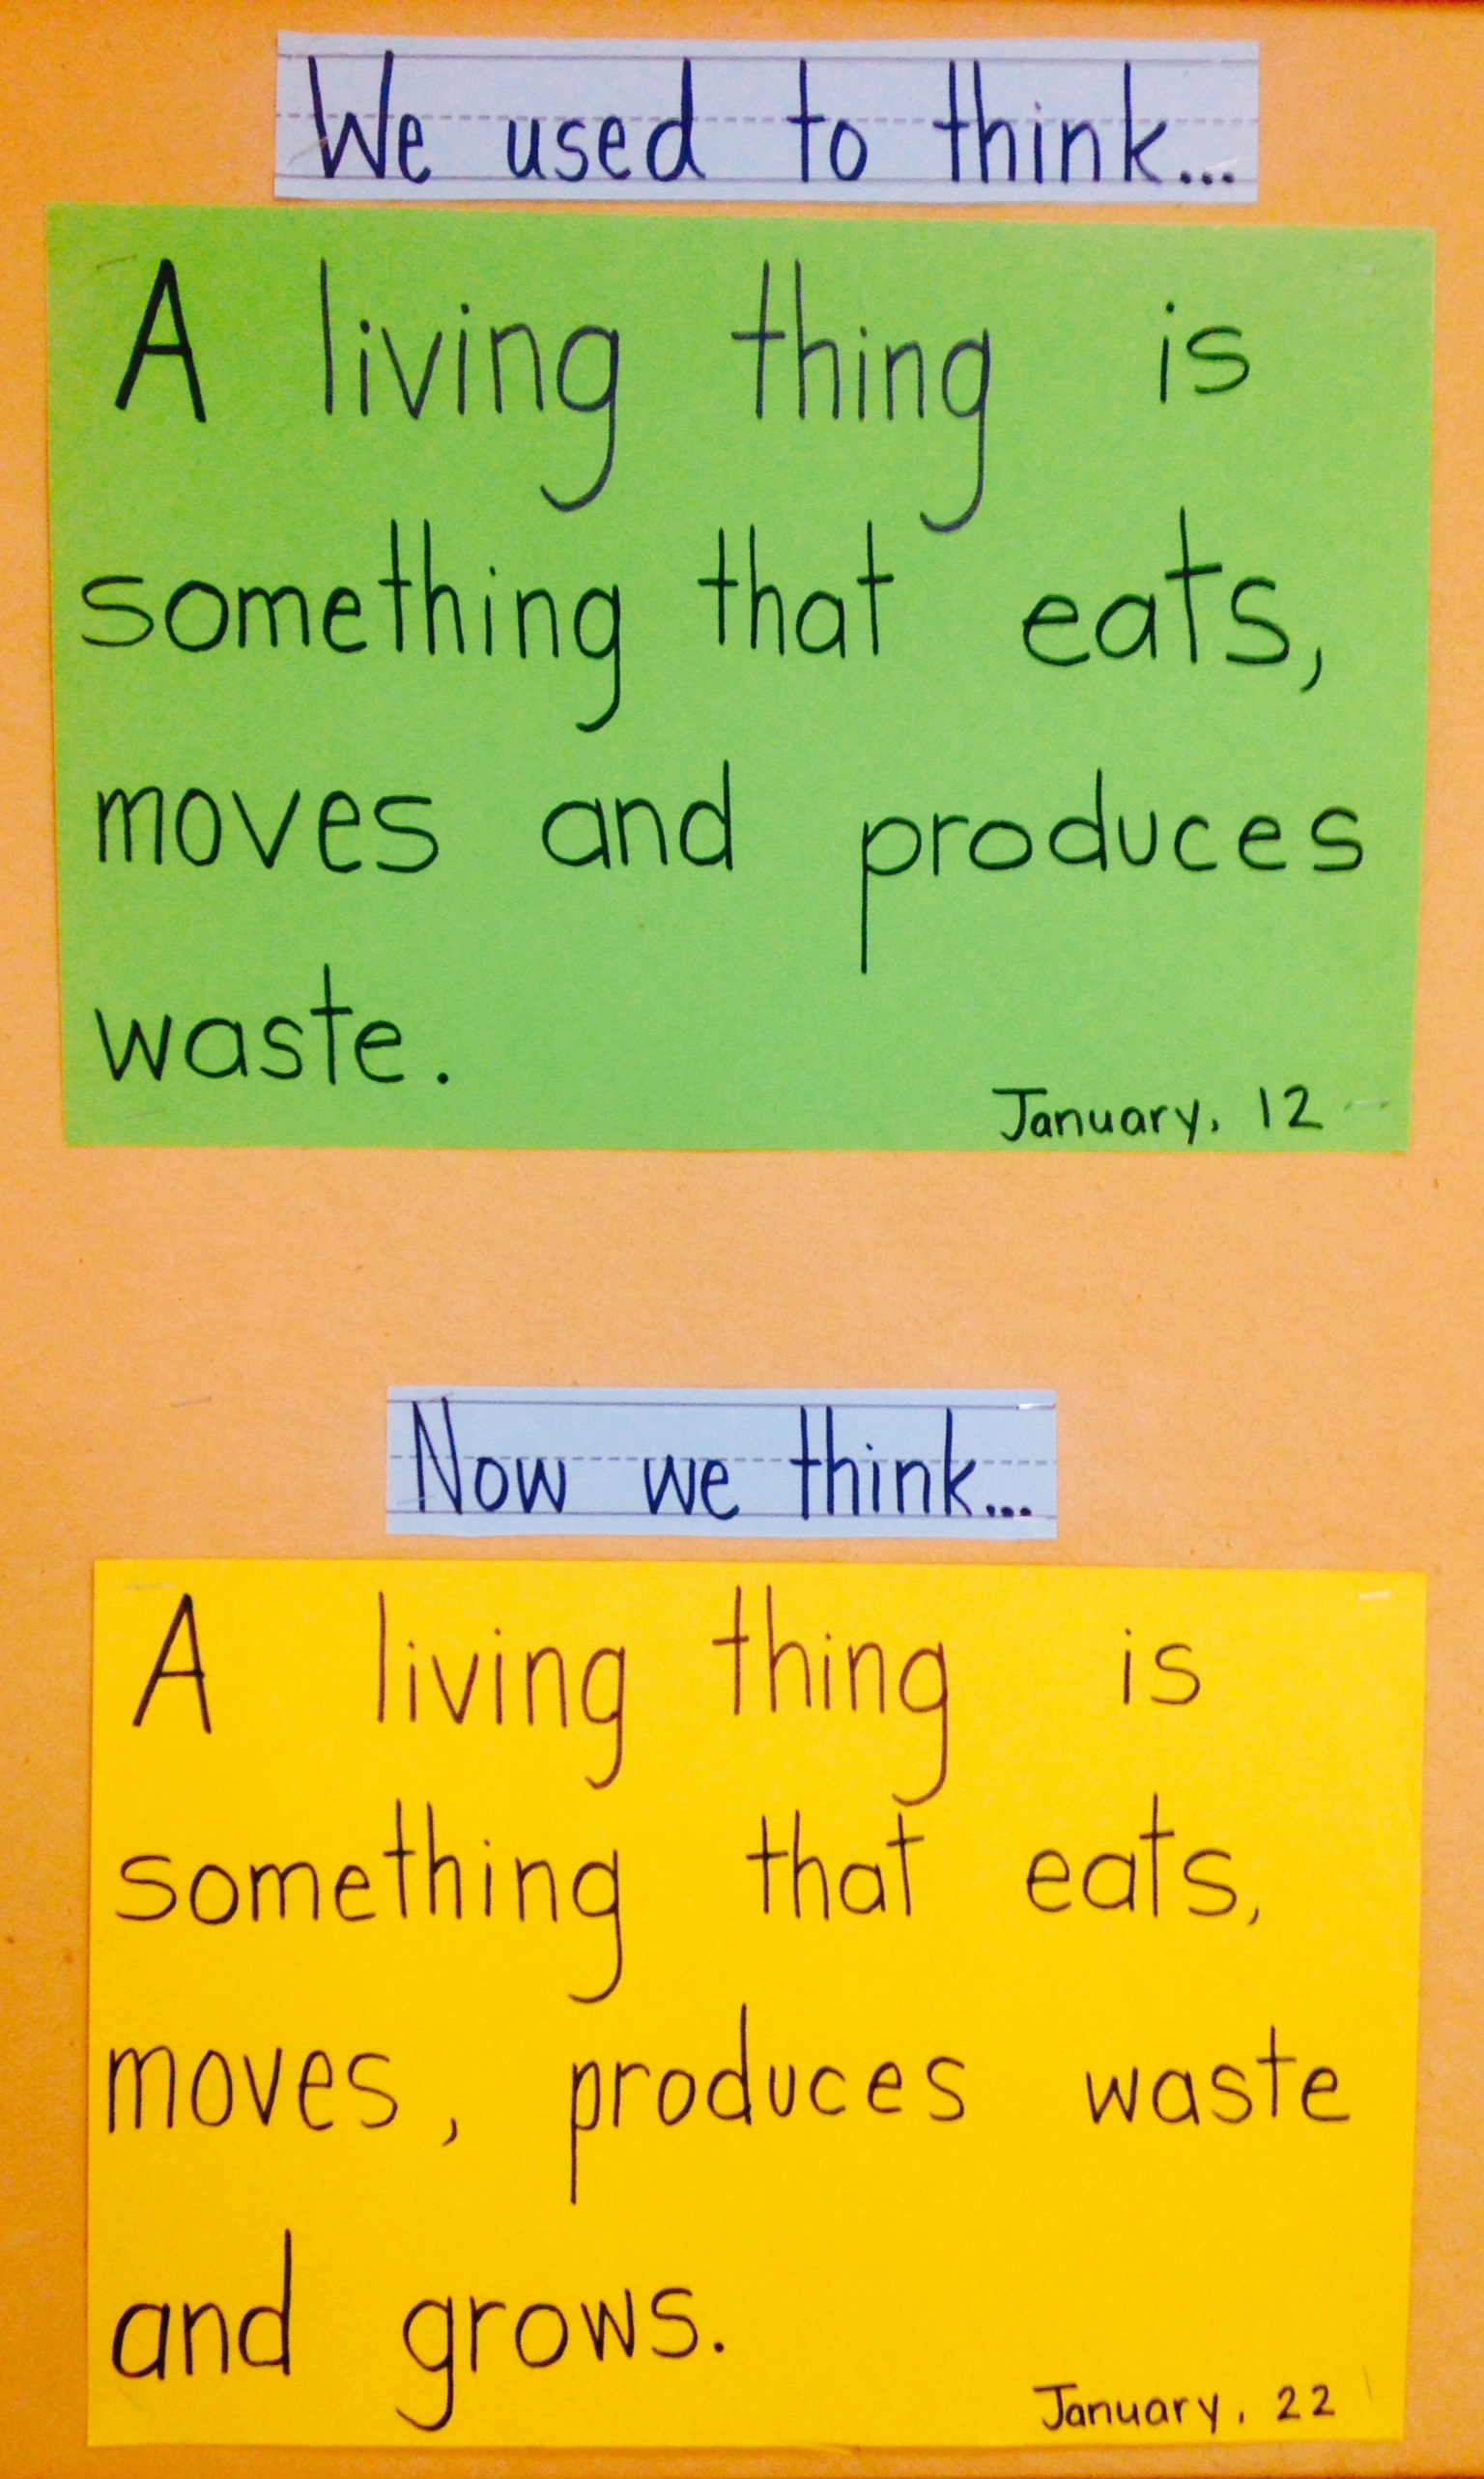 We used to think...
A living thing is
something that eats,
moves and produces
waste.
January, 12
Now we think...
A living thing is
something that eats,
moves, produces waste
and grows.
January, 22